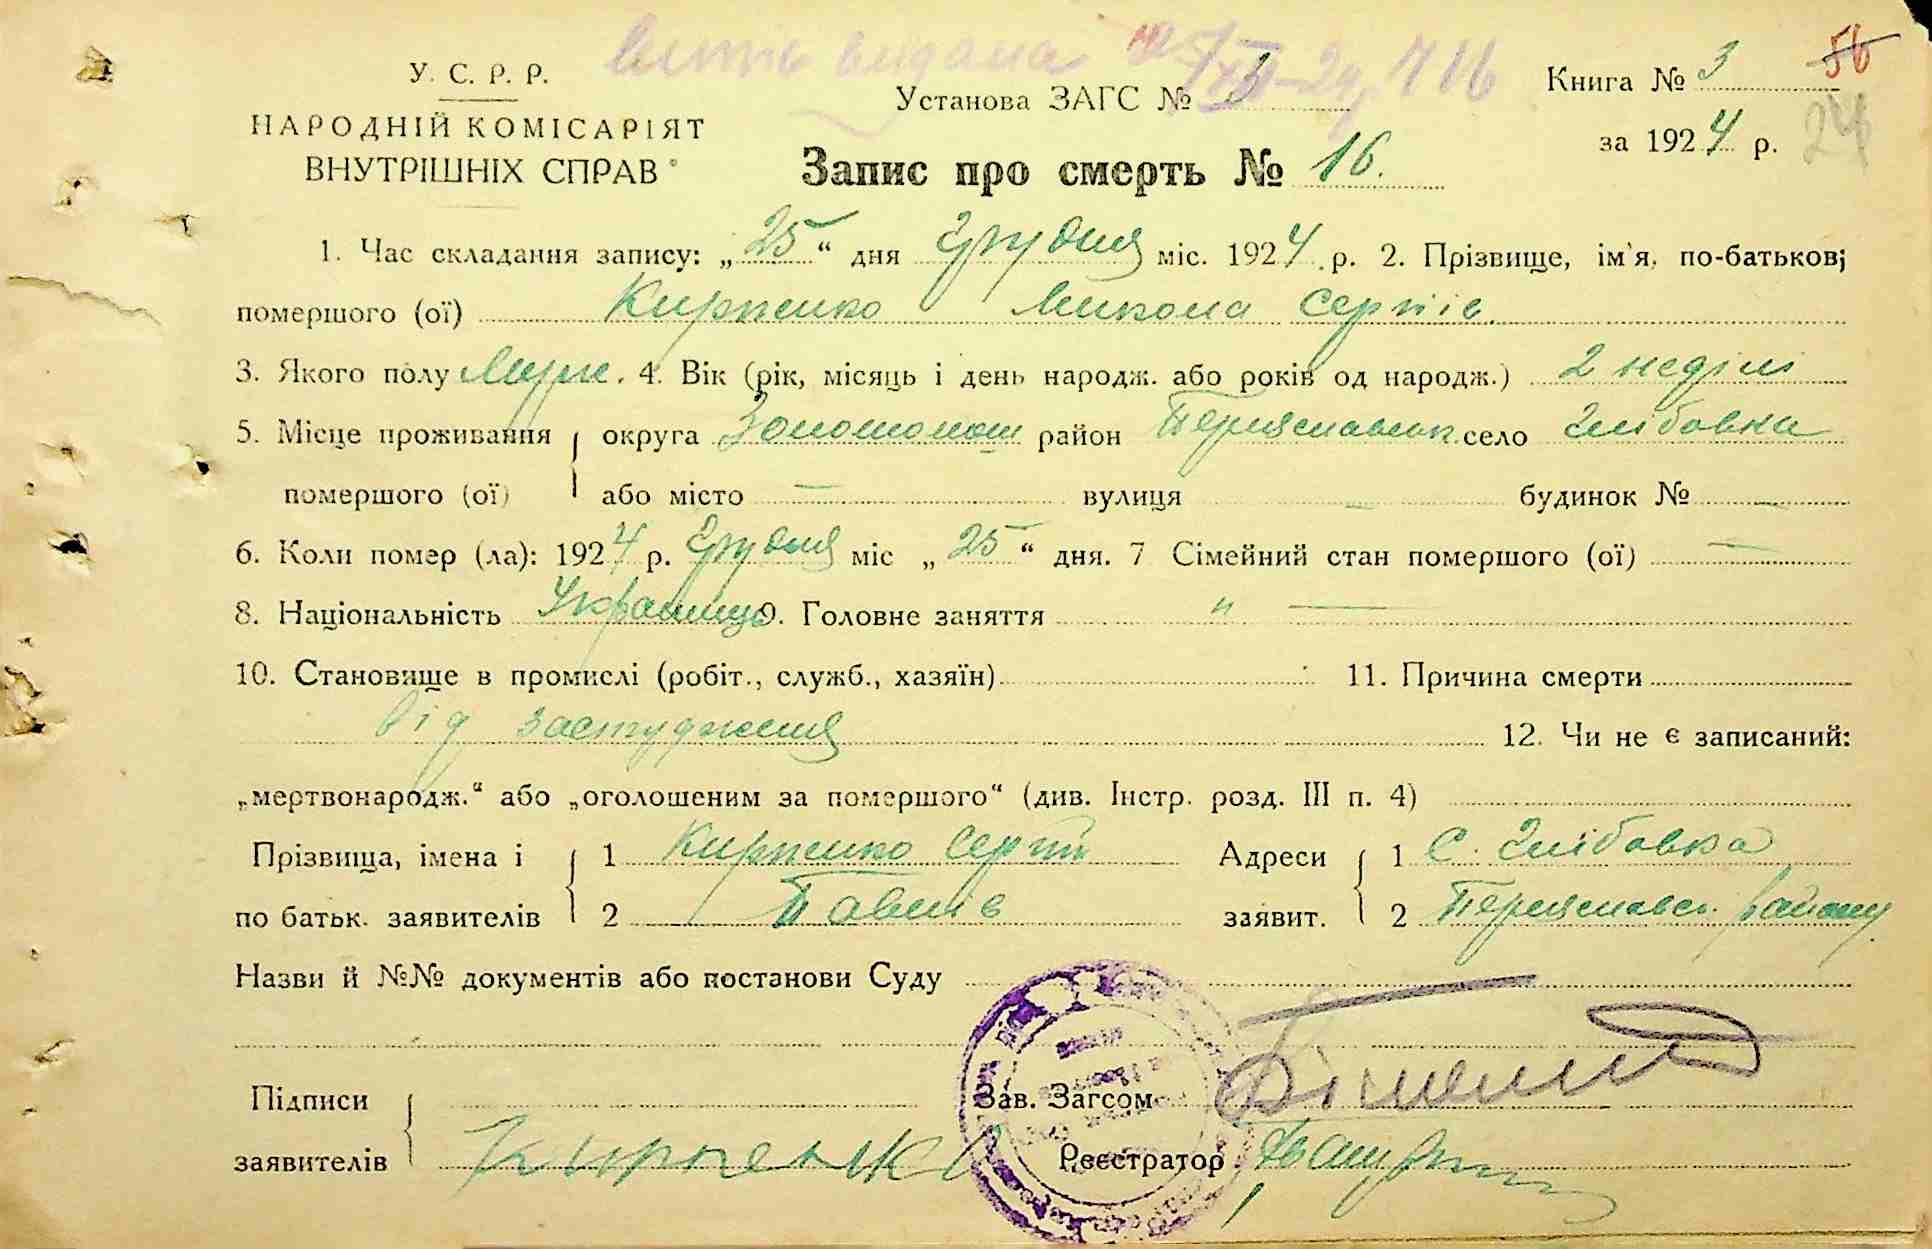 У. С. Р. Р.
НАРОДНІЙ КОМІСАРІЯТ
ВНУТРІШНІХ СПРАВ
видана
Установа ЗАГС № 3
Книга № 3
56
за 1924 р.
Запис про смерть № 16.
1. Час складання запису: „25“ дня Грудня міс. 1924 р. 2. Прізвище, ім'я, по-батькові
помершого (ої) Кирпенко Микола Сергіїв
3. Якого полу Муж. 4. Вік (рік, місяць і день народж. або років од народж.) 2 неділі
5. Місце проживання округа Золотоно район Переяславськ. село Глібовка
помершого (ої) або місто — вулиця — будинок № —
6. Коли помер (ла): 1924 р. Грудня міс „25“ дня. 7 Сімейний стан помершого (ої) —
8. Національність Украинць 9. Головне заняття " —
10. Становище в промислі (робіт., служб., хазяїн) 11. Причина смерти
від застудження 12. Чи не є записаний:
„мертвонародж.“ або „оголошеним за помершого“ (див. Інстр. розд. III п. 4)
Прізвища, імена і 1 Кирпенко Сергій Адреси 1 С. Глібовка
по батьк. заявителів 2 Павлів заявит. 2 Переяславсь. району
Назви й №№ документів або постанови Суду
Підписи Зав. Загсом
заявителів Кирпенко Реєстратор